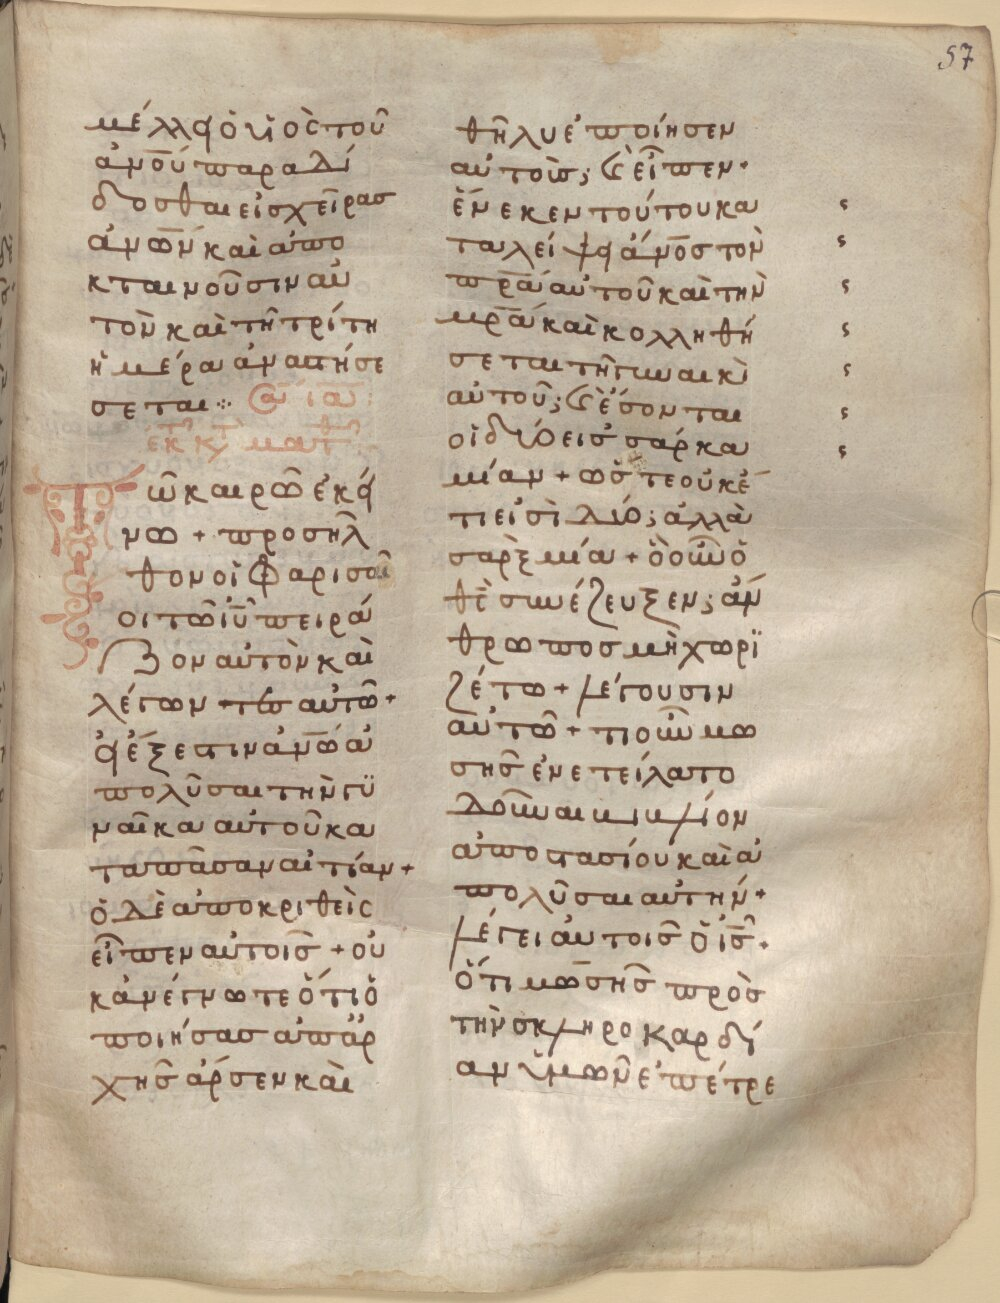 57
μέλλει ὁ ὑιὸς τοῦ
ἀν̅ου παραδί
δοσθαι εἰς χεῖρας
ἀν̅ων καὶ ἀπο
κταινοῦσιν αὐ
τὸν καὶ τῆ τρίτη
ἡμέρα ἀναστήσε
σεται
ἐκ κατ
Τῶ καιρῶ ἐκεί
νω + προσῆλ
θον οἱ Φαρισαῖ
οι τῶ ιυ̅ πειρά
ζον αὐτὸν καὶ
λέγων τες αὐτῶ +
εἰ ἔξεστιν ἀν̅ω ἀ
πολῦσαι τὴν γϋ
ναῖκα αὐτοῦ κα
τα πᾶσαν αἰτίαν +
ὁ δὲ ἀποκριθεὶς
εἶπεν αὐτοῖς + οὐ
κ ἀνέγνωτε ὅτι ὁ
ποιήσας ἀπ ἀρ
χῆς ἄρσεν καὶ
θῆλυ ἐποίησεν
αὐτοὺς; ϛ εἶπεν·
ἕνεκεν τούτου κα
ταλείψει ἄν̅ος τὸν
πρ̅α αὐτοῦ καὶ τὴν
μρ̅α καὶ κολληθή
σεται τῆ γυναικὶ
αὐτοῦ; ϛ ἔσονται
οἱ δύο εἰς σάρκα
μίαν + ὥστε οὐκέ
τι εἰσὶ δύο; ἀλλὰ
σαρξ μία + ὃ οὖν ὁ
θς̅ συνέζευξεν; ἄν
θρωπος μὴ χωρϊ
ζέτω + λέγουσιν
αὐτῶ + τι οὖν μω
σῆς ἐνετείλατο
δοῦναι βιβλίον
ἀποστασίου καὶ ἀ
πολῦσαι αὐτήν +
λέγει αὐτοῖς ὁ ις̅ +
ὅτι μωσῆς πρὸς
τὴν σκληροκαρδί
αν ὑμῶν ἐπέτρε